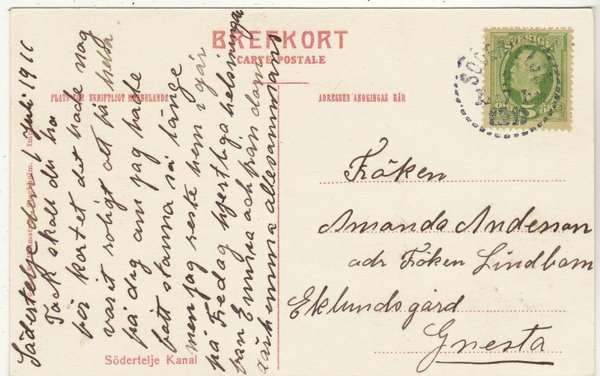 BREFKORT
CARTE POSTALE
PLATS FÖR SKRIFTLIGT MEDDELANDE
ADRESSEN ANGIFVES HÄR
SVERIGE
Södertelje den 1 Juli 1911
Tack skall du ha
för kortet det hade nog
varit roligt att på
på dig om jag hade
fått stanna så länge
men jag reste hem i går
på Fredag hjertliga helsningar
från Emma och från dom
hemma allesammans
Fröken
Amanda Anderson
adr Fröken Lindbom
Eklundsgård
Gnesta
Södertelje Kanal